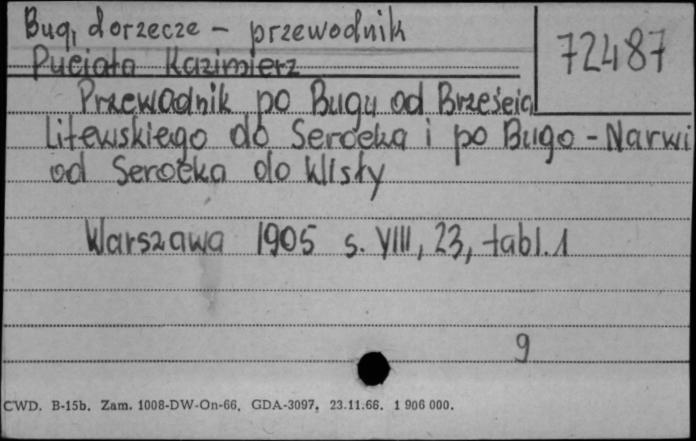 Bug, dorzecze - przewodnik
72487
Puciata Kazimierz
Przewodnik po Bugu od Brześcia
Litewskiego do Serocka i po Bugo - Narwi
od Serocka do Wisły
Warszawa 1905 s. VIII, 23, tabl. 1
9
CWD. B-15b. Zam. 1008-DW-On-66, GDA-3097, 23.11.66. 1 906 000.